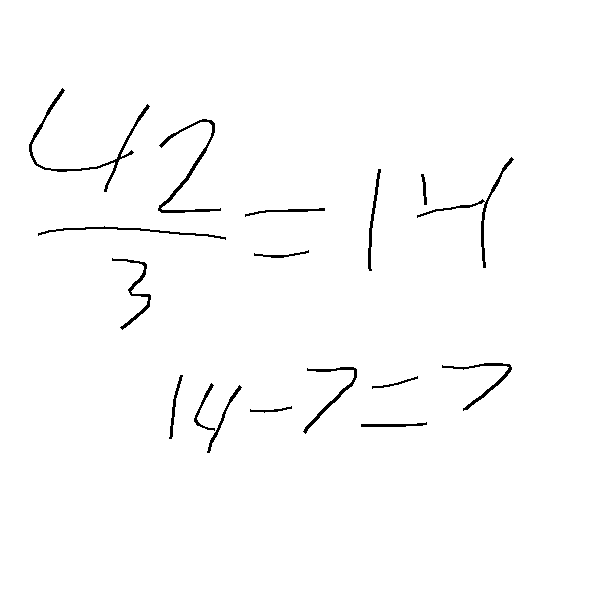 42/3 = 14
14 - 7 = 7